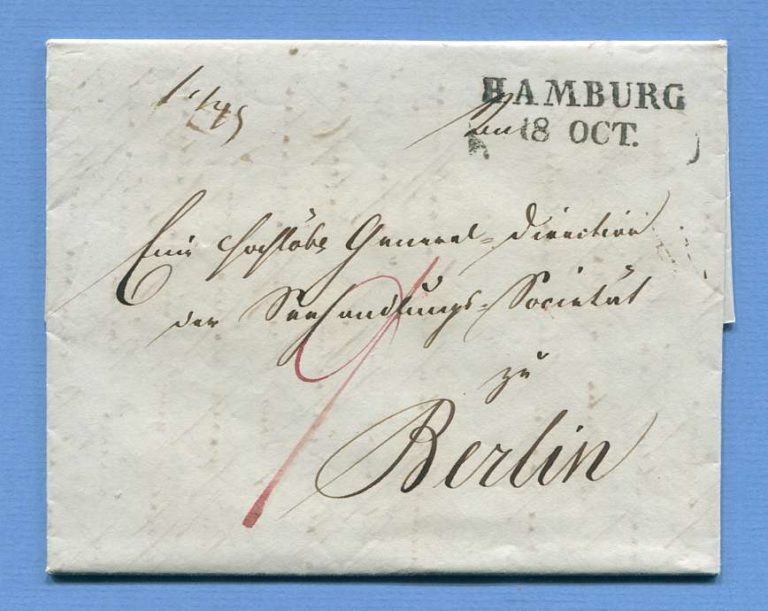 HAMBURG
18 OCT.
An
Eine Hochlöbl General-Direction
der Seehandlungs-Societät
zu
Berlin